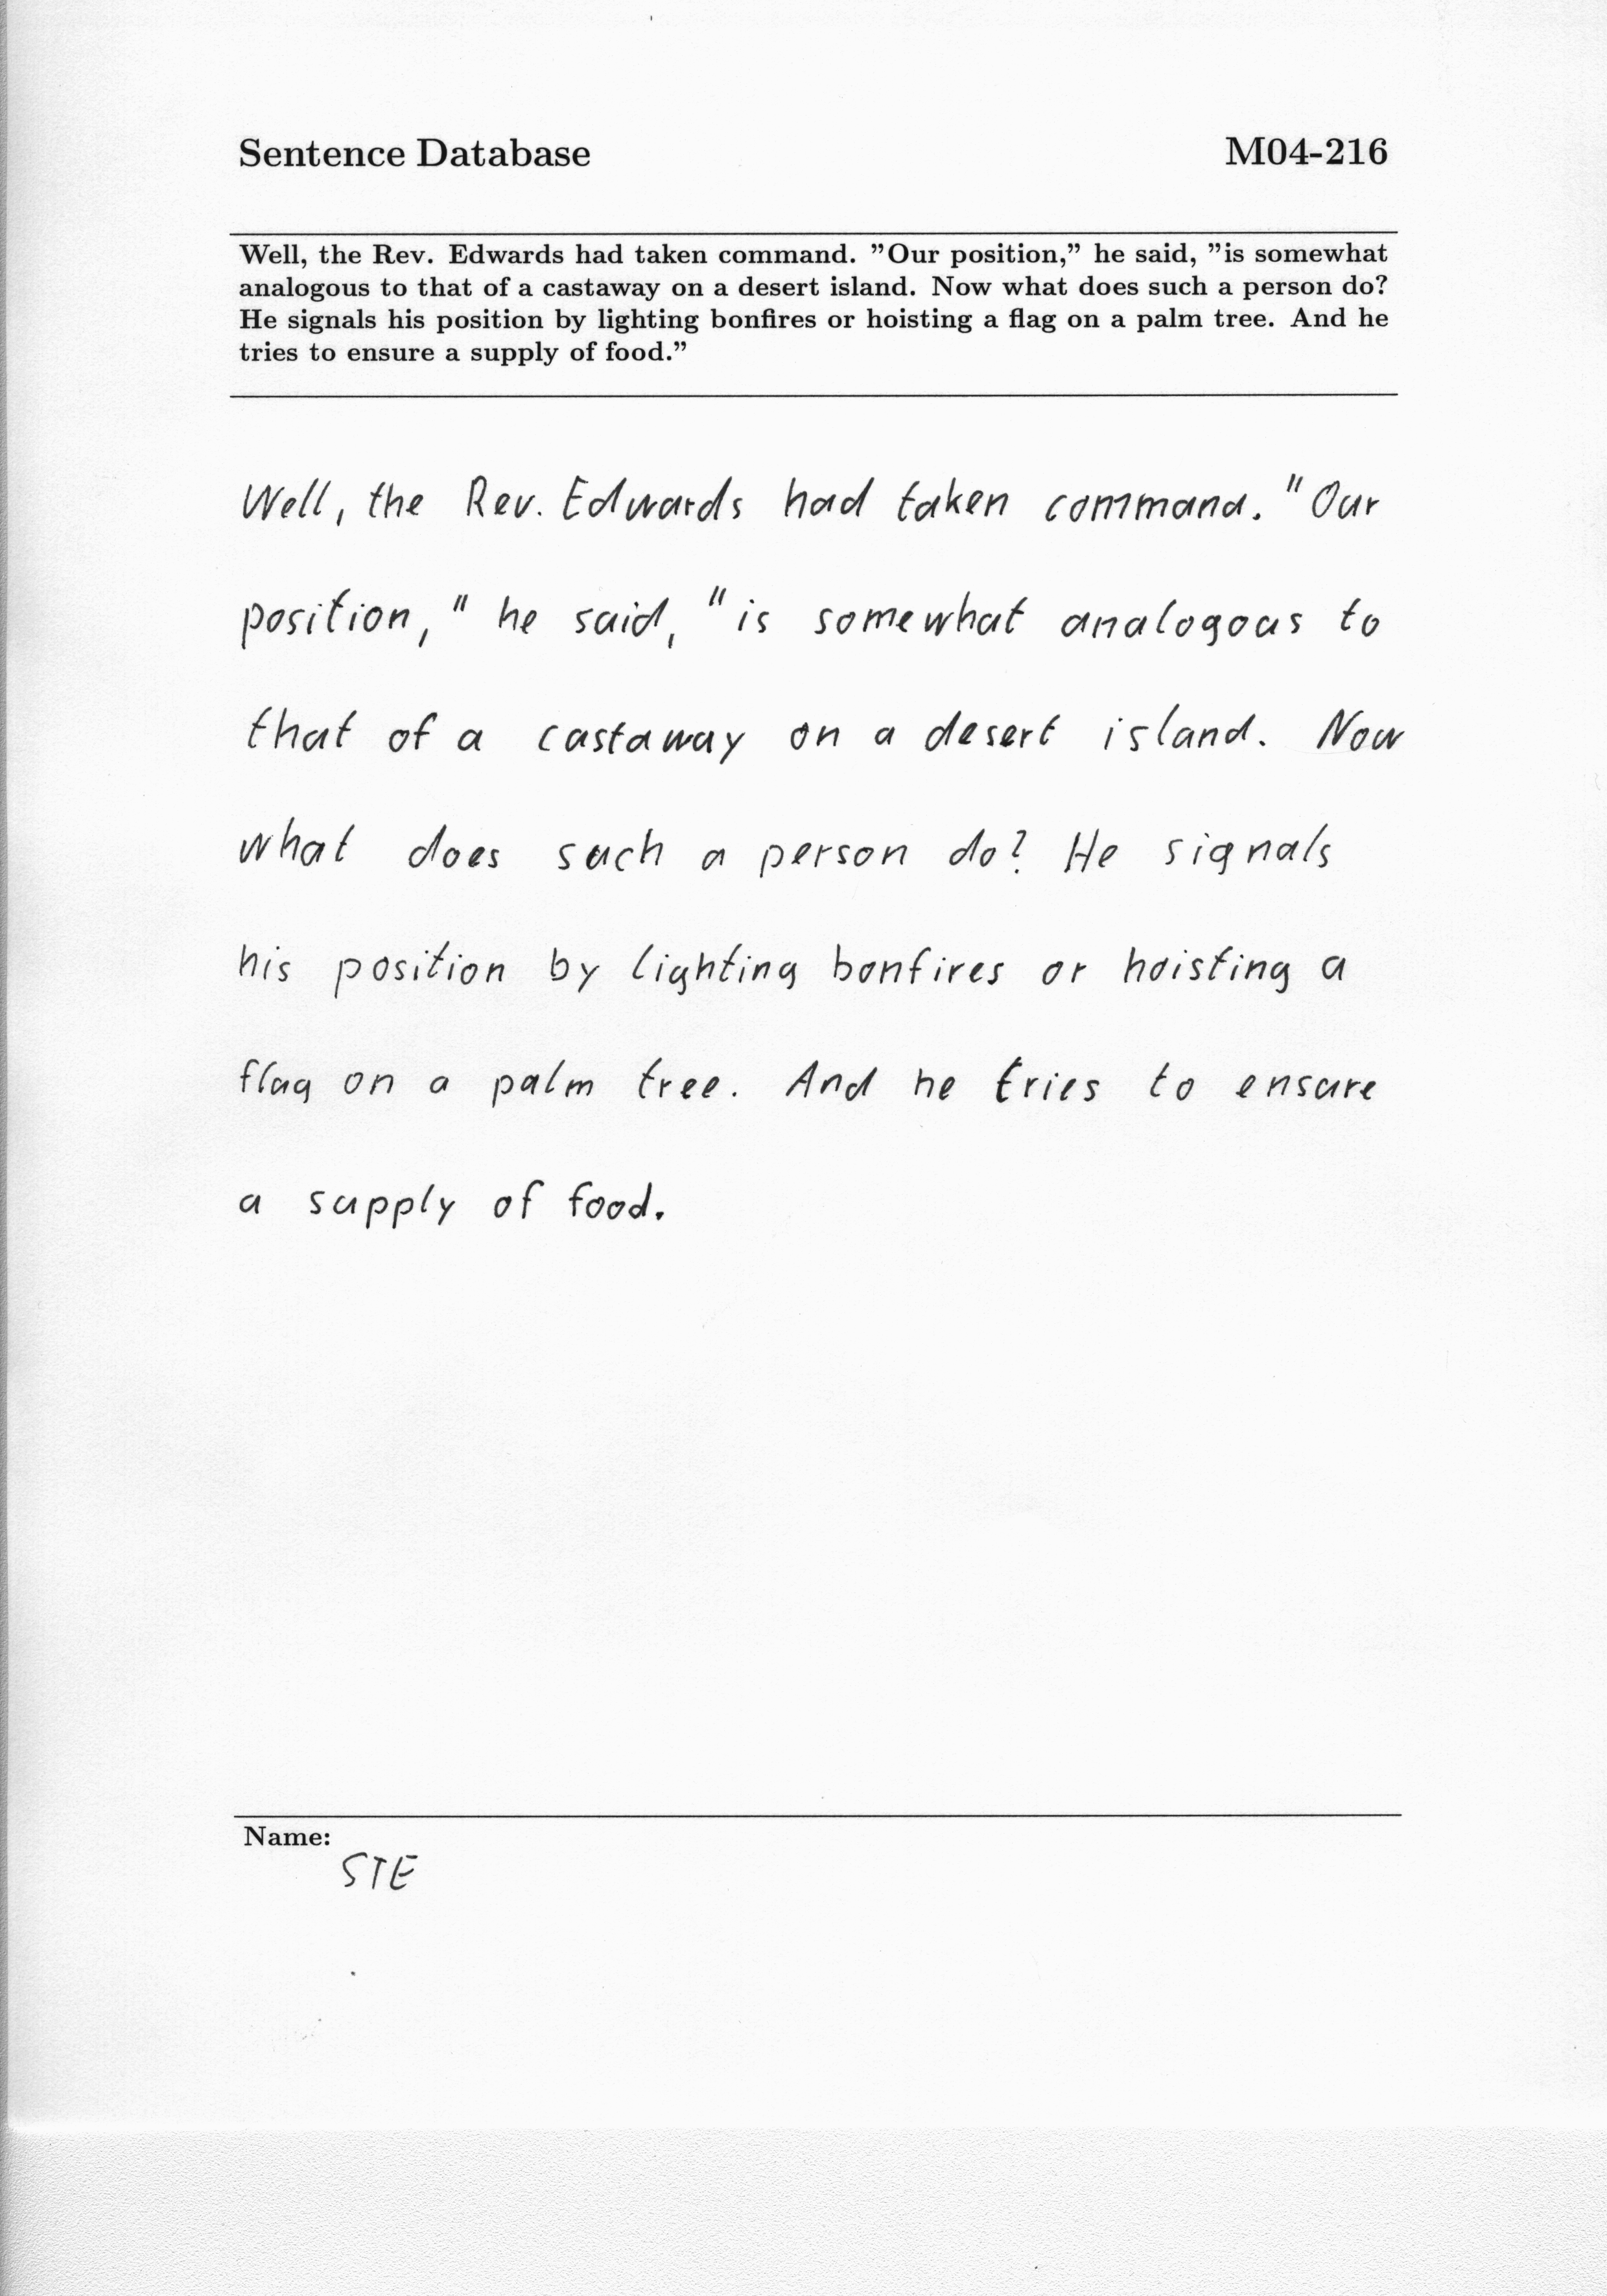 Sentence Database M04-216
Well, the Rev. Edwards had taken command. ”Our position,” he said, ”is somewhat
analogous to that of a castaway on a desert island. Now what does such a person do?
He signals his position by lighting bonfires or hoisting a flag on a palm tree. And he
tries to ensure a supply of food.”
Well, the Rev. Edwards had taken command. "Our
position," he said, "is somewhat analogous to
that of a castaway on a desert island. Now
what does such a person do? He signals
his position by lighting bonfires or hoisting a
flag on a palm tree. And he tries to ensure
a supply of food.
Name:
STE